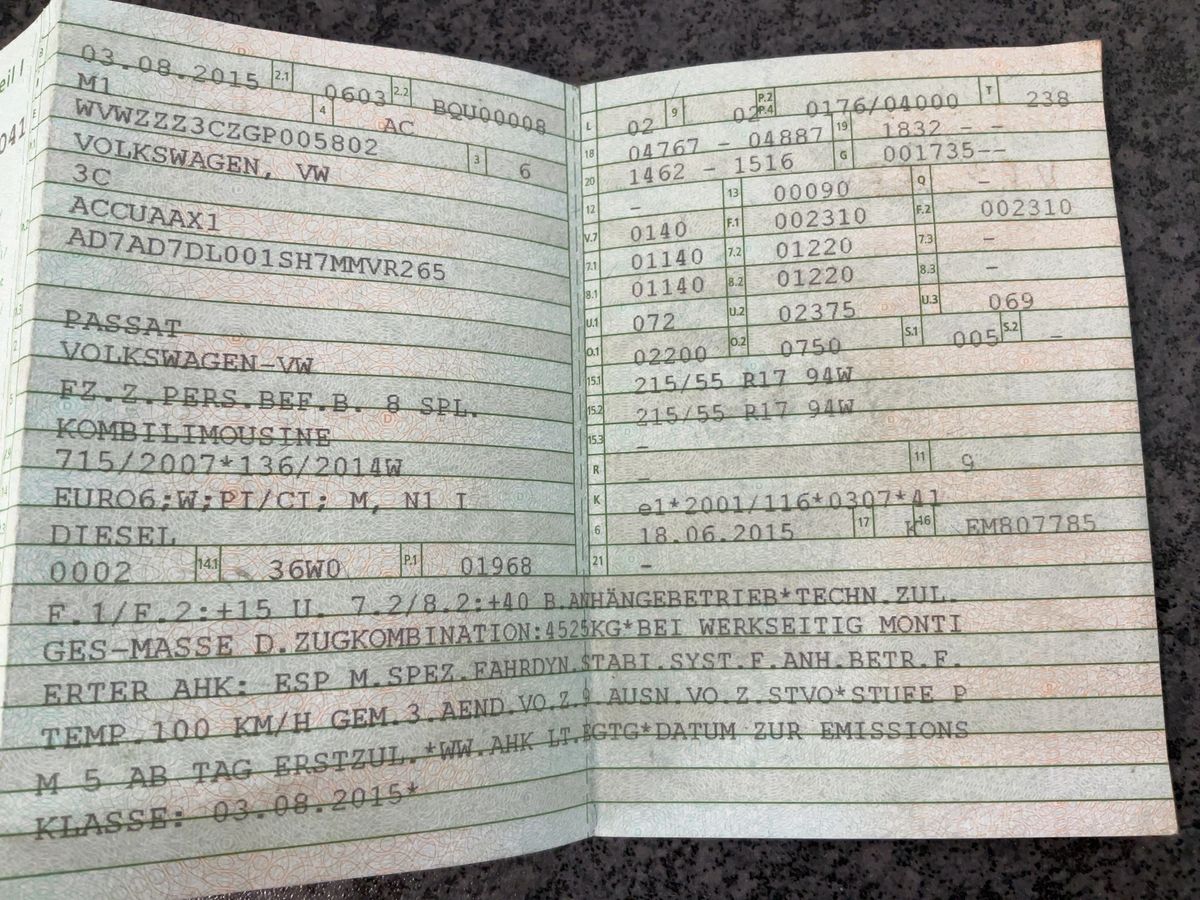 eil I
041
03.08.2015 2.1 0603 2.2 BQU00008
M1 4 AC
WVWZZZ3CZGP005802 3 6
VOLKSWAGEN, VW
3C
ACCUAAX1
AD7AD7DL001SH7MMVR265
PASSAT
VOLKSWAGEN-VW
FZ.Z.PERS.BEF.B. 8 SPL.
KOMBILIMOUSINE
715/2007*136/2014W
EURO6;W;PI/CI; M, N1 I
DIESEL
0002 14.1 36W0 P.1 01968
L 02 9 02 P.2 P.4 0176/04000 T 238
18 04767 - 04887 19 1832 - -
20 1462 - 1516 G 001735--
12 - 13 00090 Q -
V.7 0140 F.1 002310 F.2 002310
7.1 01140 7.2 01220 7.3 -
8.1 01140 8.2 01220 8.3 -
U.1 072 U.2 02375 U.3 069
O.1 02200 O.2 0750 S.1 005 S.2 -
15.1 215/55 R17 94W
15.2 215/55 R17 94W
15.3 -
R - 11 9
K e1*2001/116*0307*41
6 18.06.2015 17 K 16 EM807785
21 -
F.1/F.2:+15 U. 7.2/8.2:+40 B.ANHÄNGEBETRIEB*TECHN.ZUL.
GES-MASSE D.ZUGKOMBINATION:4525KG*BEI WERKSEITIG MONTI
ERTER AHK: ESP M.SPEZ.FAHRDYN.STABI.SYST.F.ANH.BETR.F.
TEMP.100 KM/H GEM.3.AEND.VO.Z.9 AUSN.VO.Z.STVO*STUFE P
M 5 AB TAG ERSTZUL.*WW.AHK LT.EGTG*DATUM ZUR EMISSIONS
KLASSE: 03.08.2015*